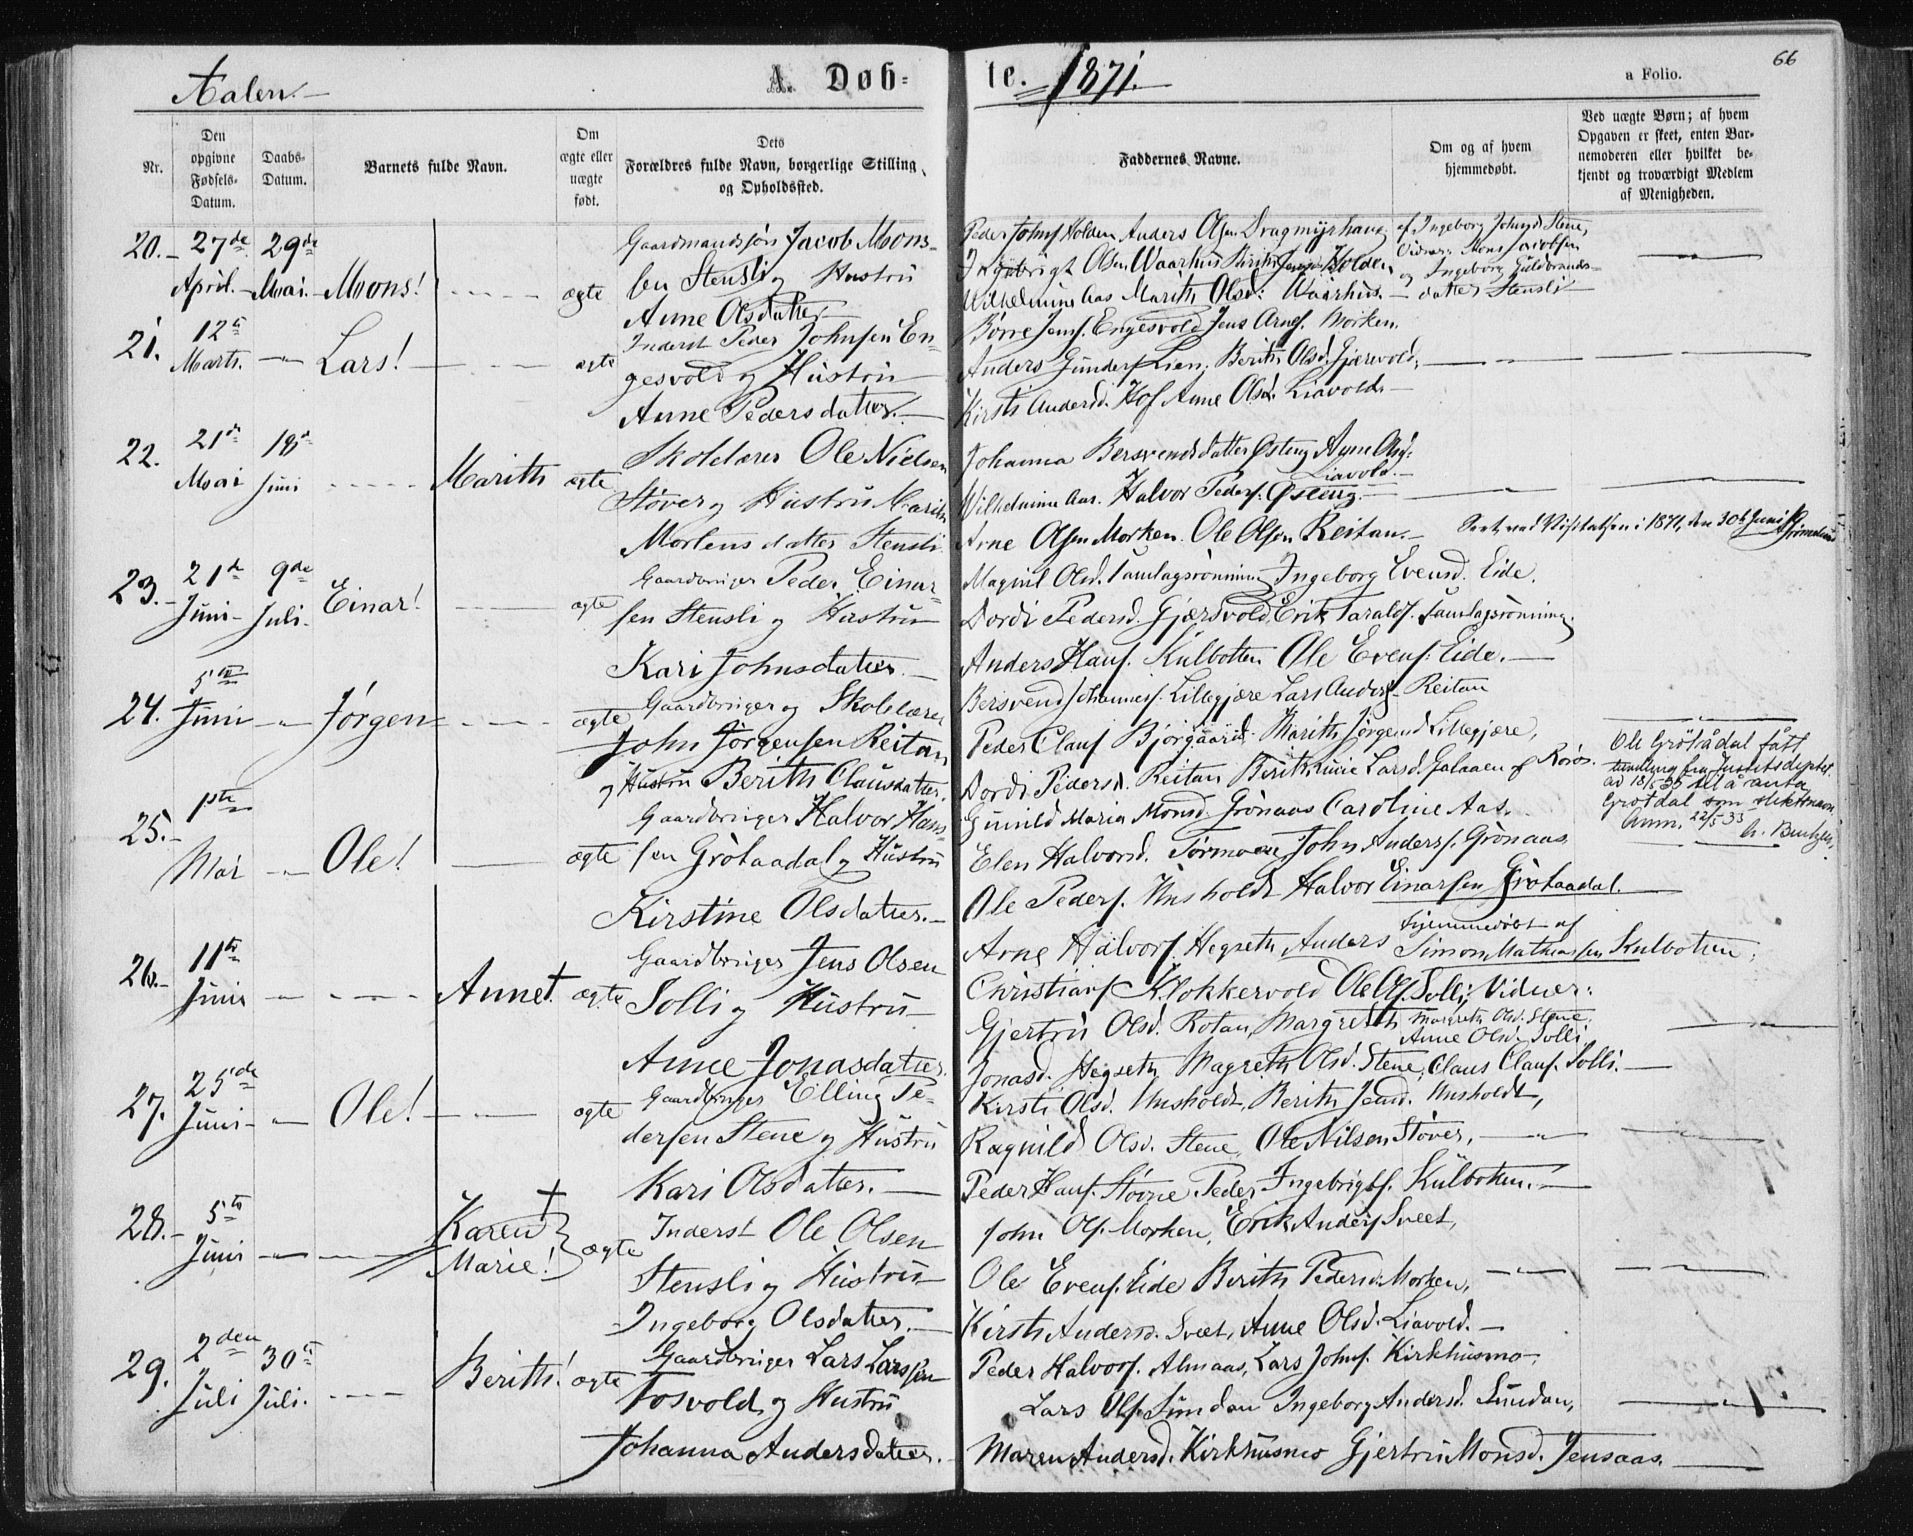 Aalen.
A. Døb-
te. 1871.
a Folio.
66
Nr.
Den opgivne Fødsels-Datum.
Daabs-Datum.
Barnets fulde Navn.
Om ægte eller uægte født.
Dets Forældres fulde Navn, borgerlige Stilling og Opholdssted.
Faddernes Navne.
Om og af hvem hjemmedøbt.
Ved uægte Børn; af hvem Opgaven er skeet, enten Barnemoderen eller hvilket bekjendt og troværdigt Medlem af Menigheden.
20. 27de April. 29de Mai. Mons! ægte
Gaardmandssøn Jacob Mons-
sen Stensli og Hustru
Anne Olsdatter.
Peder Johnsf Holden Anders Olsen Dragmyrhaug
Ingebrigt Olsen Waarhus Berith Holden
Wilhelmine Aas Marith Olsd: Waarhus.
af Ingeborg Johnsd. Stene,
Vidner: Mons Jacobsen
og Ingeborg Guldbrands-
datter Stensli
21. 12te Marts. Lars! ægte
Inderst Peder Johnsen En-
gesvold og Hustru
Anne Pedersdatter.
Børre Jensf. Engesvold Jens Arnes. Morken.
Anders Gunders. Lien, Berith Olsd. Gjærsvold,
Kirsti Andersd. Hof Anne Olsd. Liavold.
22. 21de Mai 18de Juni Marith ægte
Skolelærer Ole Nielsen
Støver og Hustru Marith
Mortensdatter Stensli
Johanna Bersvendsdatter Østeng Anne Olsd:
Liavold.
Wilhelmine Aas. Halvor Peders. Østeng.
Arne Olsen Morken. Ole Olsen Reitan.
Seet ved Visitatsen i 1871, den 30te Juni
23. 21de Juni 9de Juli. Einar! ægte
Gaardbruger Peder Einar-
sen Stensli og Hustru
Kari Johnsdatter.
Magnil Olsd. Tamlagsrønning Ingeborg Evensd. Eide.
Dordi Pedersd. Gjærsvold, Erik Taralds. Tamlagsrønning.
Anders Hans. Kulbotten Ole Evens. Eide.
24. 5te Juni Jørgen ægte
Gaardbruger og Skolelærer
John Jørgensen Reitan
og Hustru Berith Clausdatter.
Bersvend Johannes. Lillegjære Lars Anders. Reitan
Peder Claus. Bjørgaard. Marith Jørgensd. Lillegjære,
Dordi Pedersd. Reitan Berith Lucie Larsd. Galaaen af Røros.
25. 1ste Mai Ole! ægte
Gaardbruger Halvor Hans-
sen Grøtaadal og Hustru
Kirstine Olsdatter.
Gunild Maria Monsd. Grønaas Caroline Aas.
Elen Halvorsd. Tørmoen John Anders. Grønaas
Ole Peders. Unsholdt Halvor Einarsen Grøtaadal.
Ole Grötådal fått
fra Justitsdeptet
ad 18/5 33 til å anta
Grøtdal som slektsnavn
Anm. 22/5 33
26. 11te Juni Anne † ægte
Gaardbruger Jens Olsen
Solli og Hustru
Anne Jonasdatter.
Arne Halvors. Hegseth Anders
Christians. Klokkervold Ole Ols. Solli,
Gjertru Olsd. Rotan, Margreth
Jonasd. Hegseth Magreth Olsd. Stene, Claus Claus. Solli.
Hjemmedøbt af
Simon Mathiassen Kulbotten.
Vidner:
Margreth Olsd. Stene.
Anne Olsd. Solli
27. 25de Juni Ole! ægte
Gaardbruger Elling Pe-
dersen Stene og Hustru
Kari Olsdatter.
Kirsti Olsd. Unsholdt, Berith Jensd. Unsholdt,
Ragnild Olsd. Stene, Ole Nilsen Støver,
Peder Hans. Støvne Peder Ingebrigts. Kulbotten.
28. 5te Juni Karen † Marie! ægte
Inderst Ole Olsen
Stensli og Hustru
Ingeborg Olsdatter.
John Ols. Morken, Erik Anders. Svect,
Ole Evens. Eide Berith Pedersd. Morken,
Kirsti Andersd. Svect, Anne Olsd. Liavold.
29. 2den Juli 30te Juli. Berith! ægte
Gaardbruger Lars Larssen
Tosvold og Hustru
Johanna Andersdatter.
Peder Halvors. Almaas, Lars Johns. Kirkhusmo,
Lars Ols. Sundan Ingeborg Andersd. Sundan,
Maren Andersd. Kirkhusmo Gjertru Monsd. Jensaas.